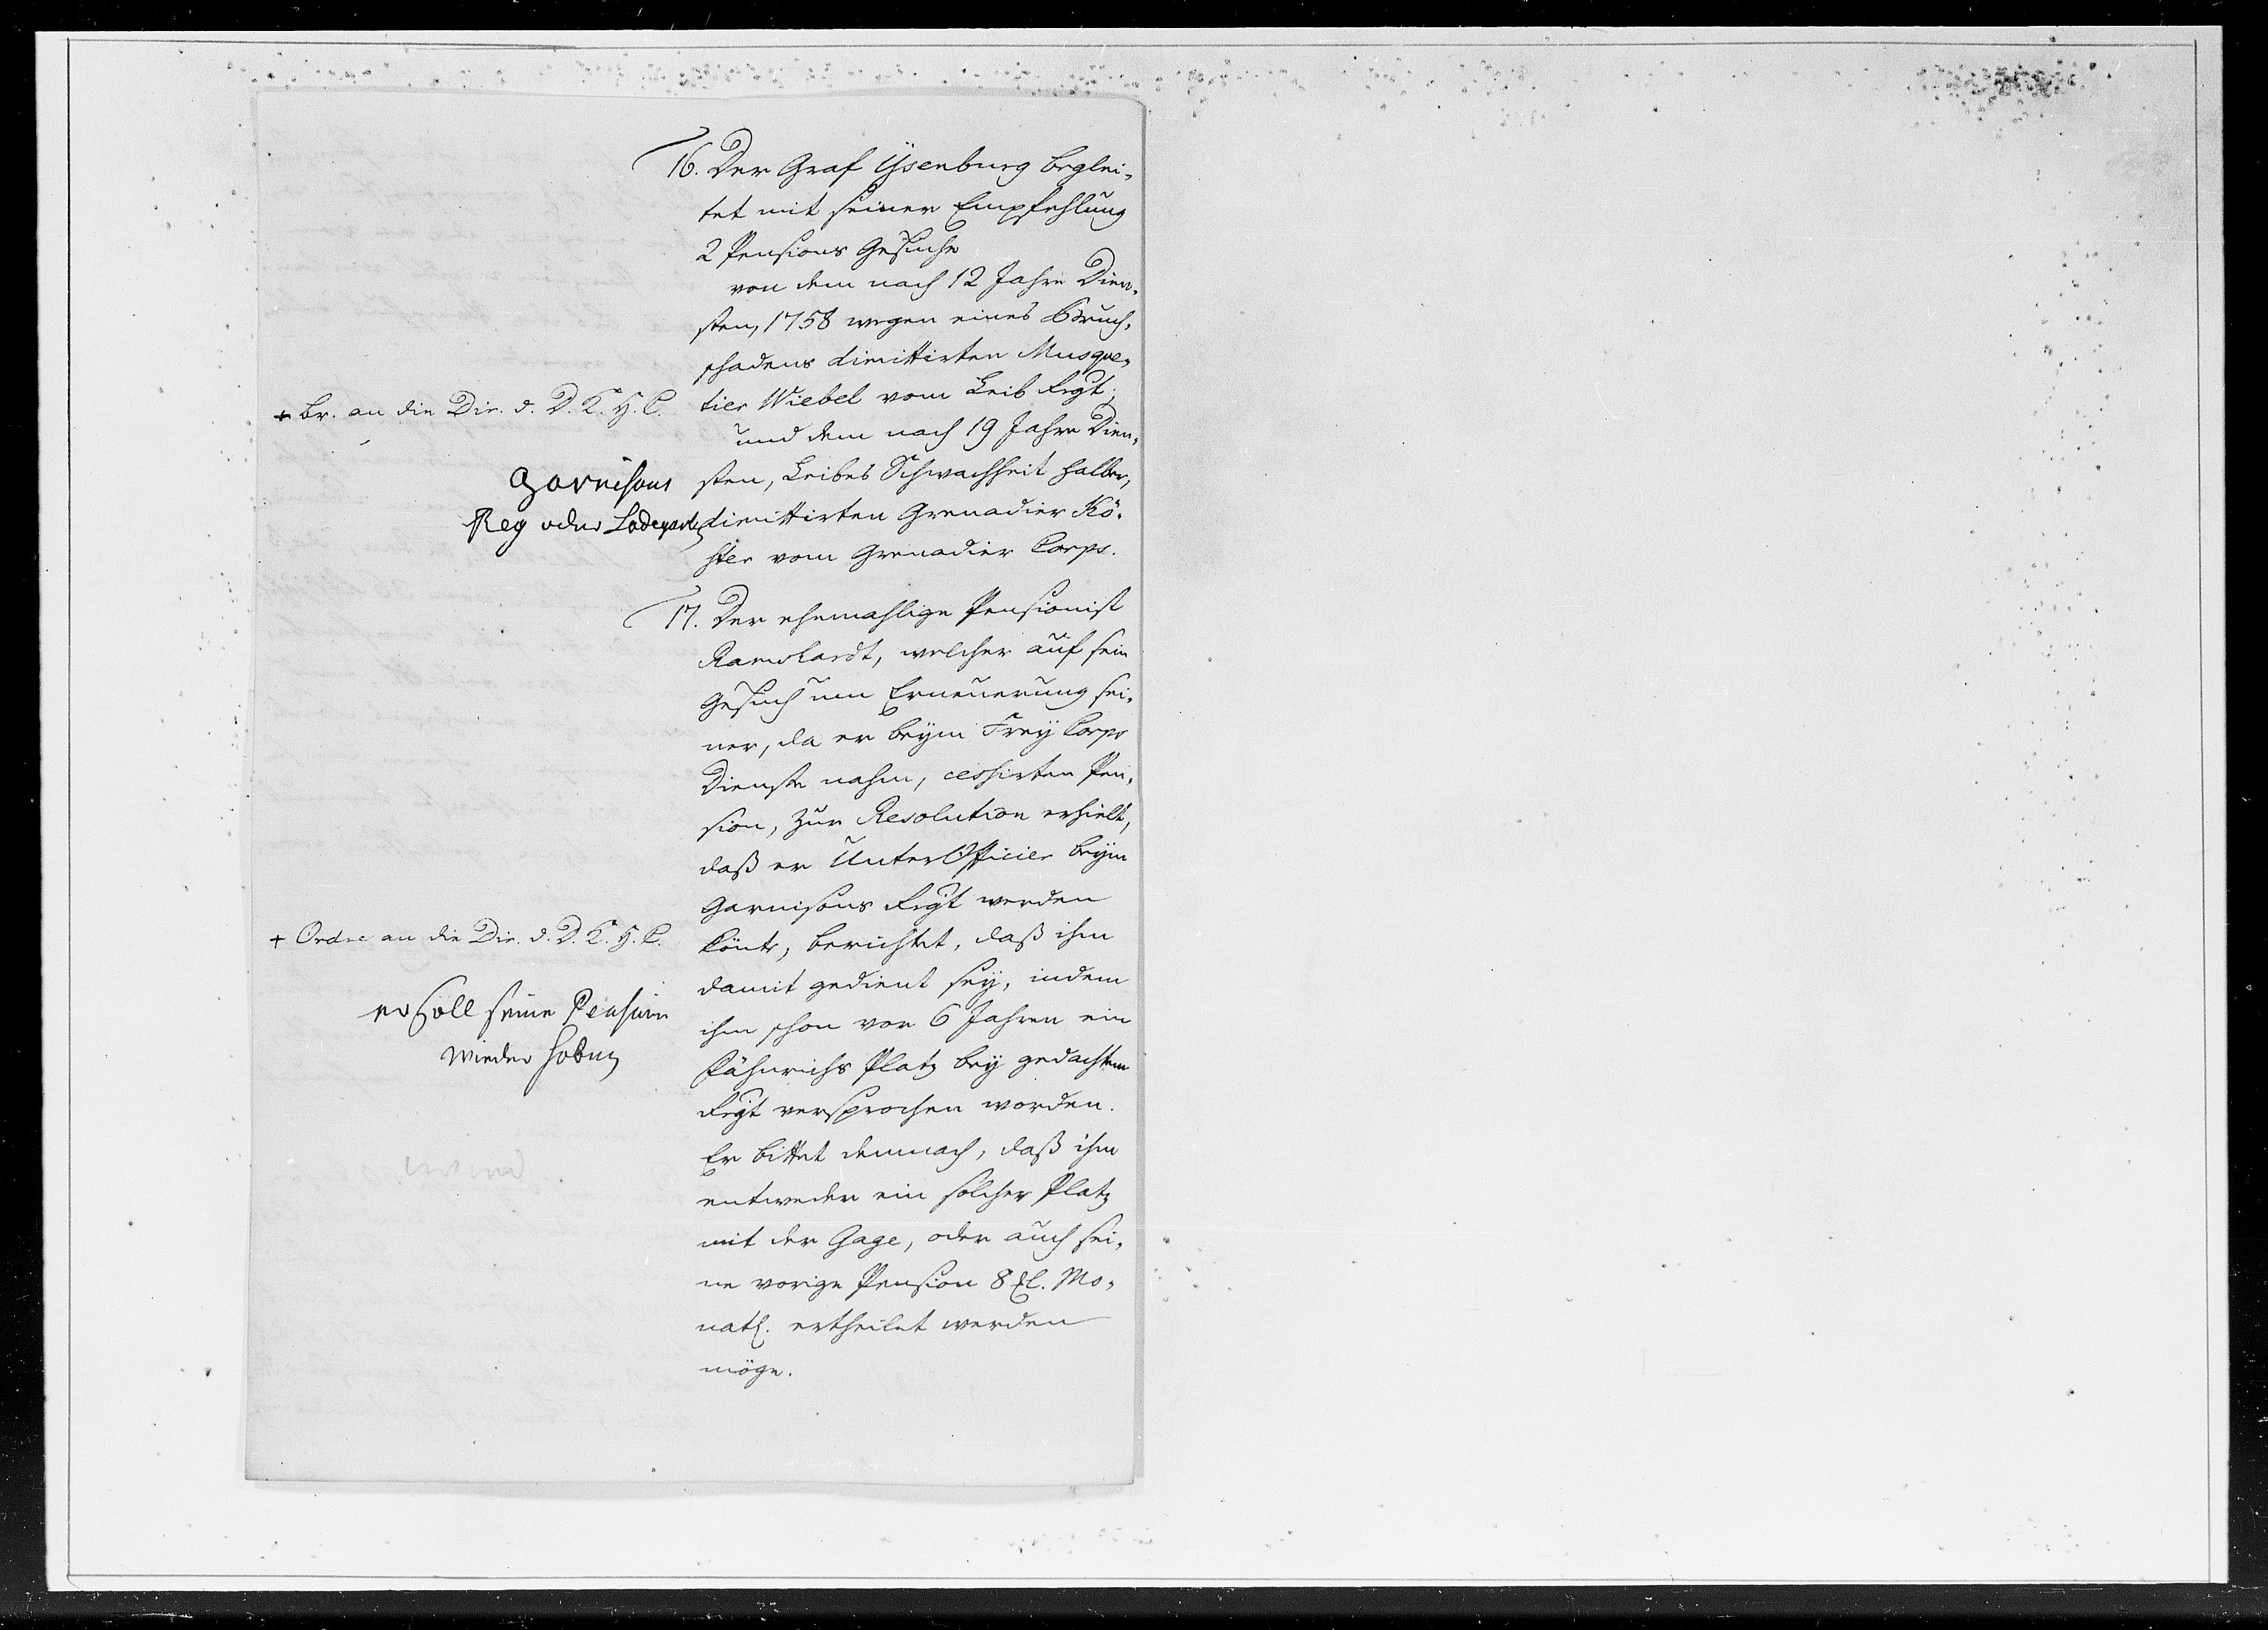 16. Der Graf Ysenburg beglei-
tet mit seiner Empfehlung
2 Pensions Gesuche
von dem nach 12 Jahre Dien-
sten, 1758 wegen eines Bruch-
schadens dimittirten Musque-
tier Wiebel vom Leib Regt;
und dem nach 19 Jahre Dien-
sten, Leibes Schwachheit halber,
dimittirten Grenadier Kö-
ster vom Grenadier Corps.
+ Br. an die Dir. d. D. K. H. C.
Garnisons
Reg oder Ladegards
17. Der ehemahlige Pensionist
Ramshardt, welcher auf sein
Gesuch um Erneuerung sei-
ner, da er beym Frey Corps
Dienste nahm, cessirten Pen-
sion, zur Resolution erhielt,
daß er UnterOfficier beym
Garnisons Regt werden
könte, berichtet, daß ihm
damit gedient sey, indem
ihm schon vor 6 Jahren ein
Fähnrichs Platz bey gedachtem
Regt versprochen worden.
Er bittet demnach, daß ihm
entweder ein solcher Platz
mit der Gage, oder auch sei-
ne vorige Pension 8 Rl. Mo-
natl. ertheilet werden
möge.
+ Ordre an die Dir. d. D. K. H. C.
er soll seine Pension
wieder haben